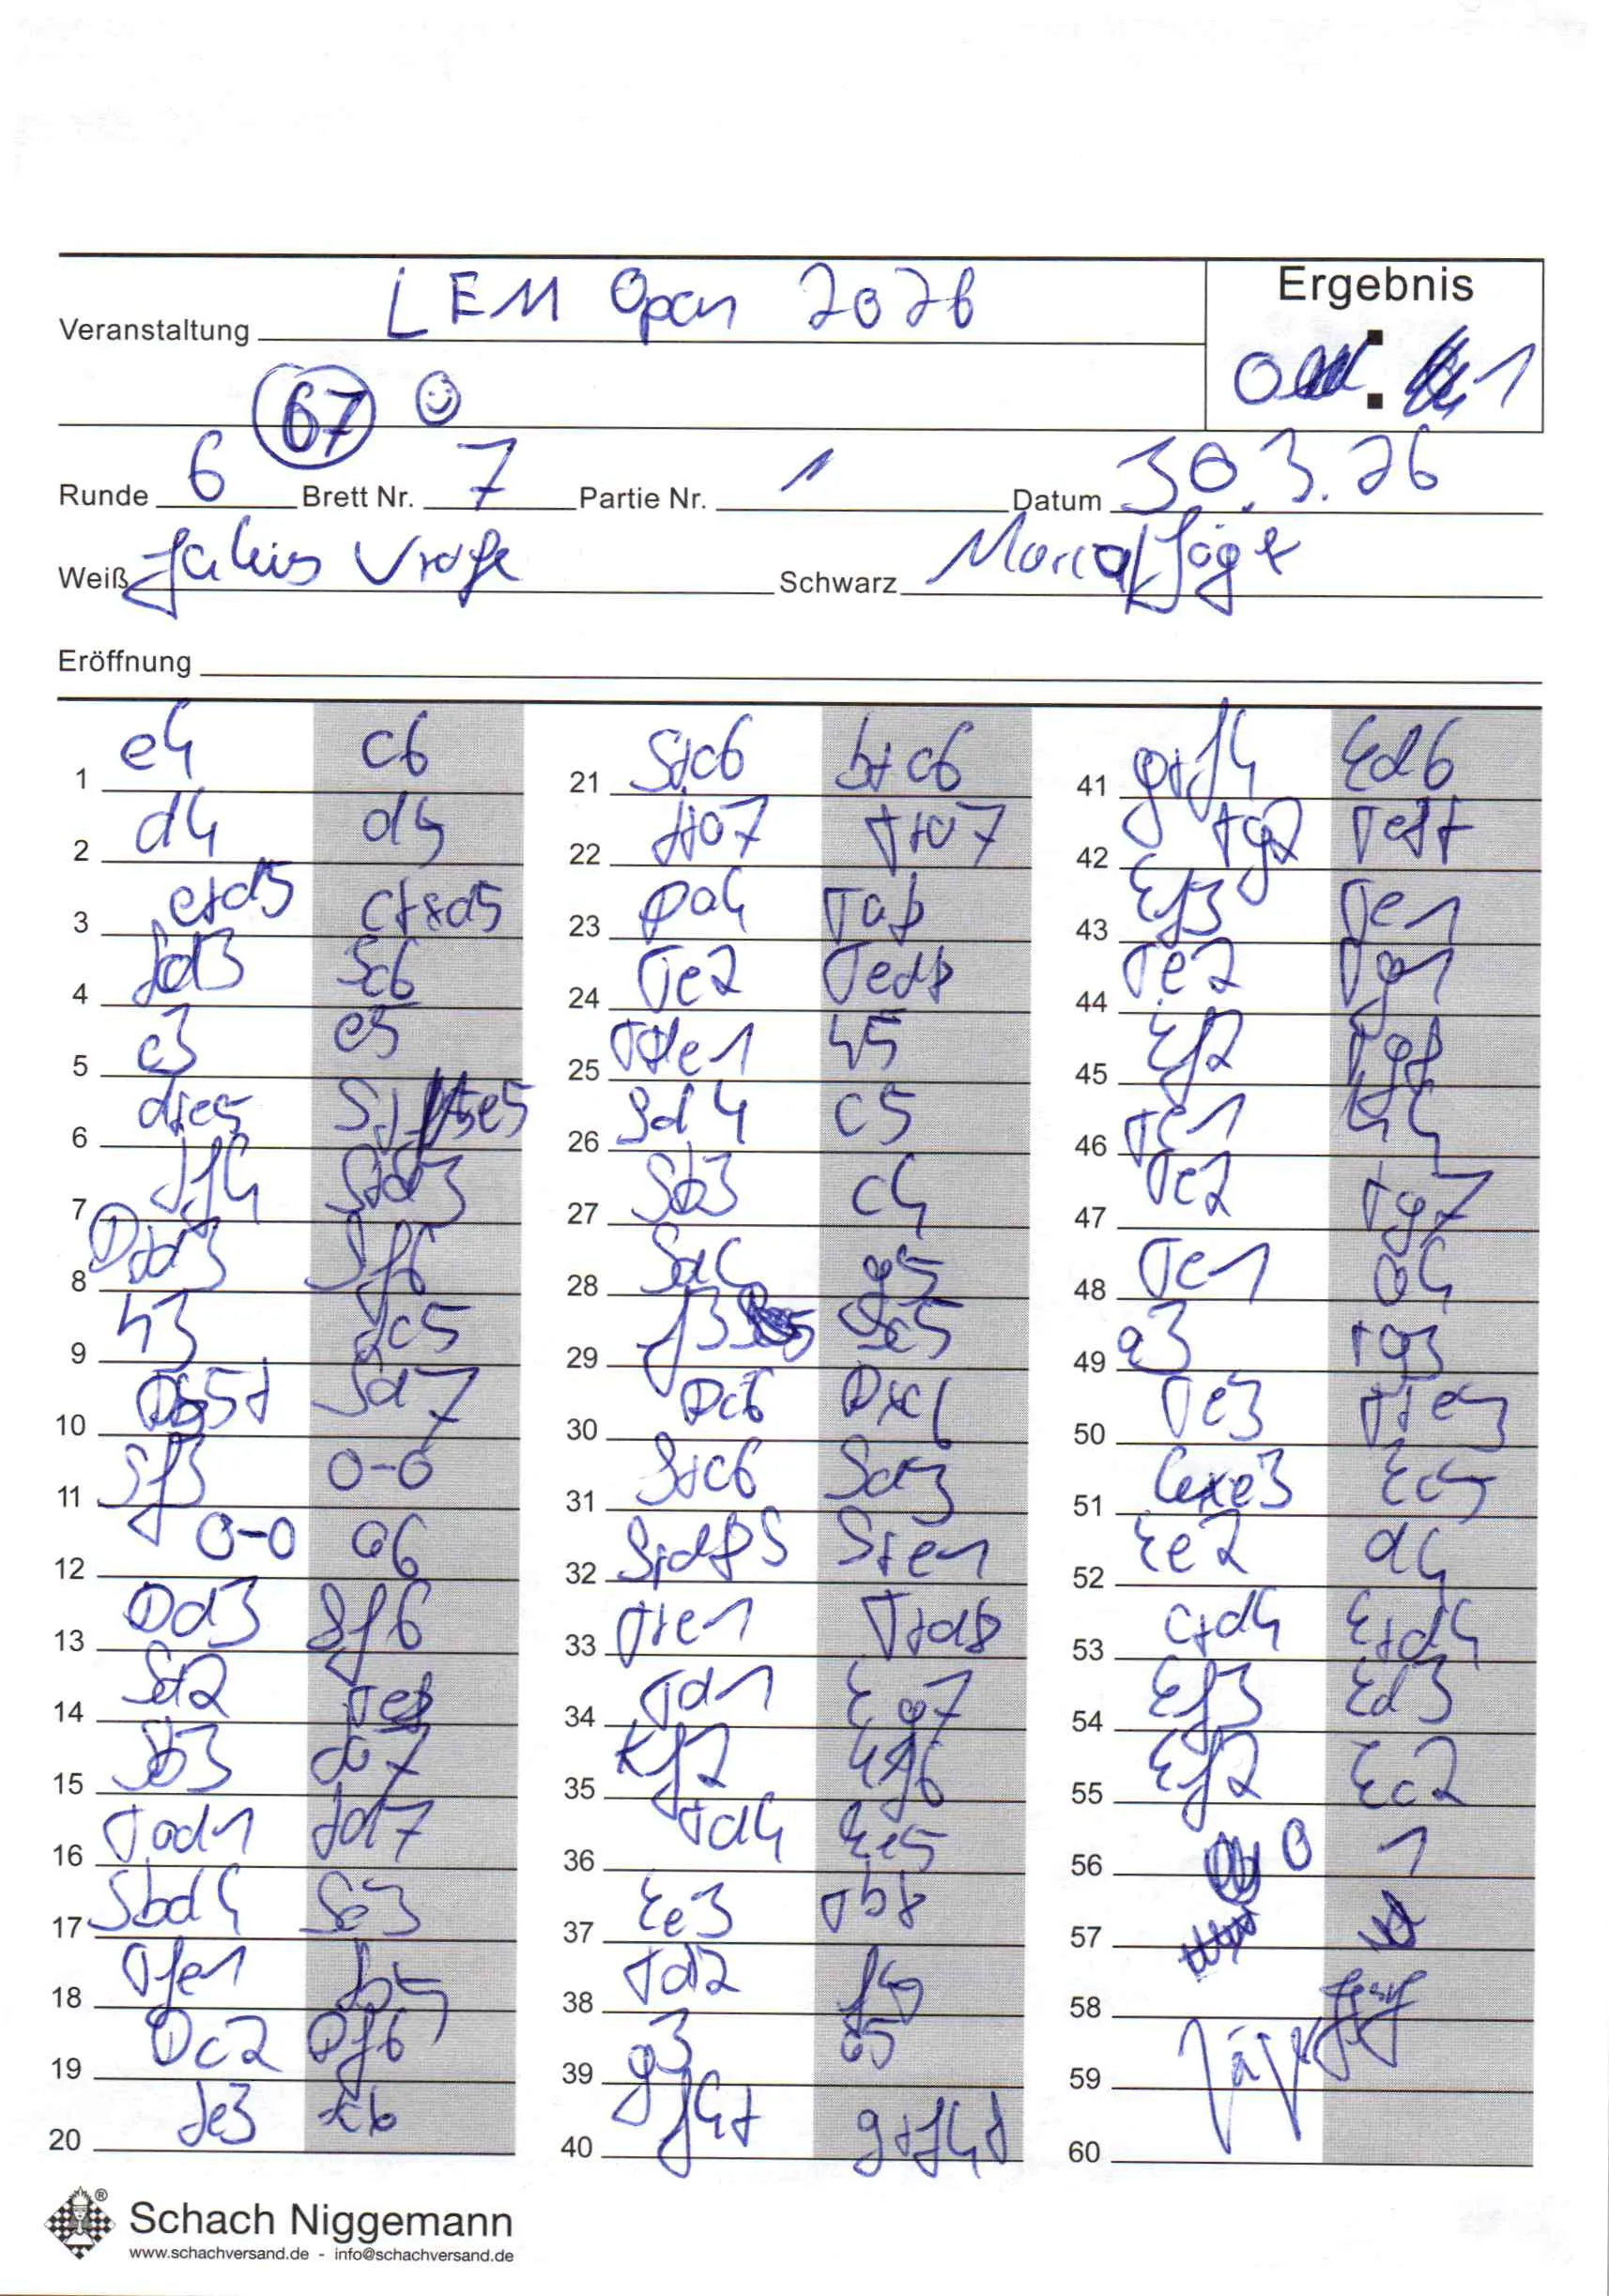 Veranstaltung LEM Open 2026
Ergebnis
0 : 1
67
Runde 6 Brett Nr. 7 Partie Nr. 1 Datum 30.3.26
Weiß Schwarz Jäger
Eröffnung
1 e4 c6
2 d4 d5
3 exd5 cxd5
4 Ld3 Sc6
5 c3 e5
6 dxe5 Sxe5
7 Lf4 Sxd3
8 Dxd3 Sf6
9 h3 Lc5
10 Db5+ Sd7
11 Sf3 0-0
12 0-0 a6
13 Dd3 Sf6
14 Sd2 Te8
15 Sb3 La7
16 Tad1 Ld7
17 Sbd4 Se3
18 Tfe1 Lb5
19 Dc2 Df6
20 Le3
21 Sxc6 bxc6
22 Lxa7 Txa7
23 Da4 Ta8
24 Te2 Ted8
25 Tde1 h5
26 Sd4 c5
27 Sb3 c4
28 g5
29 f3 Sc5
30 Dc6 Dxc6
31 Sxc6 Sd3
32 Sxd8 Sxe1
33 Txe1 Txd8
34 Td1 Kg7
35 Kf2 Kf6
36 Td4 Ke5
37 Ke3 Tb8
38 Td2
39 g3
40 f4+ gxf4+
41 gxf4 Kd6
42 Tg2 Te8+
43 Kf3 Te1
44 Te2 Tg1
45 Kf2 Tg8
46 Te1 h4
47 Te2 Tg7
48 Te1 a4
49 a3 Tg3
50 Te3 Txe3
51 Kxe3 Kc5
52 Ke2 d4
53 cxd4 Kxd4
54 Kf3 Kd3
55 Kf2 Kc2
56 0 1
57
58
59 Jäger
60
Schach Niggemann
www.schachversand.de - info@schachversand.de